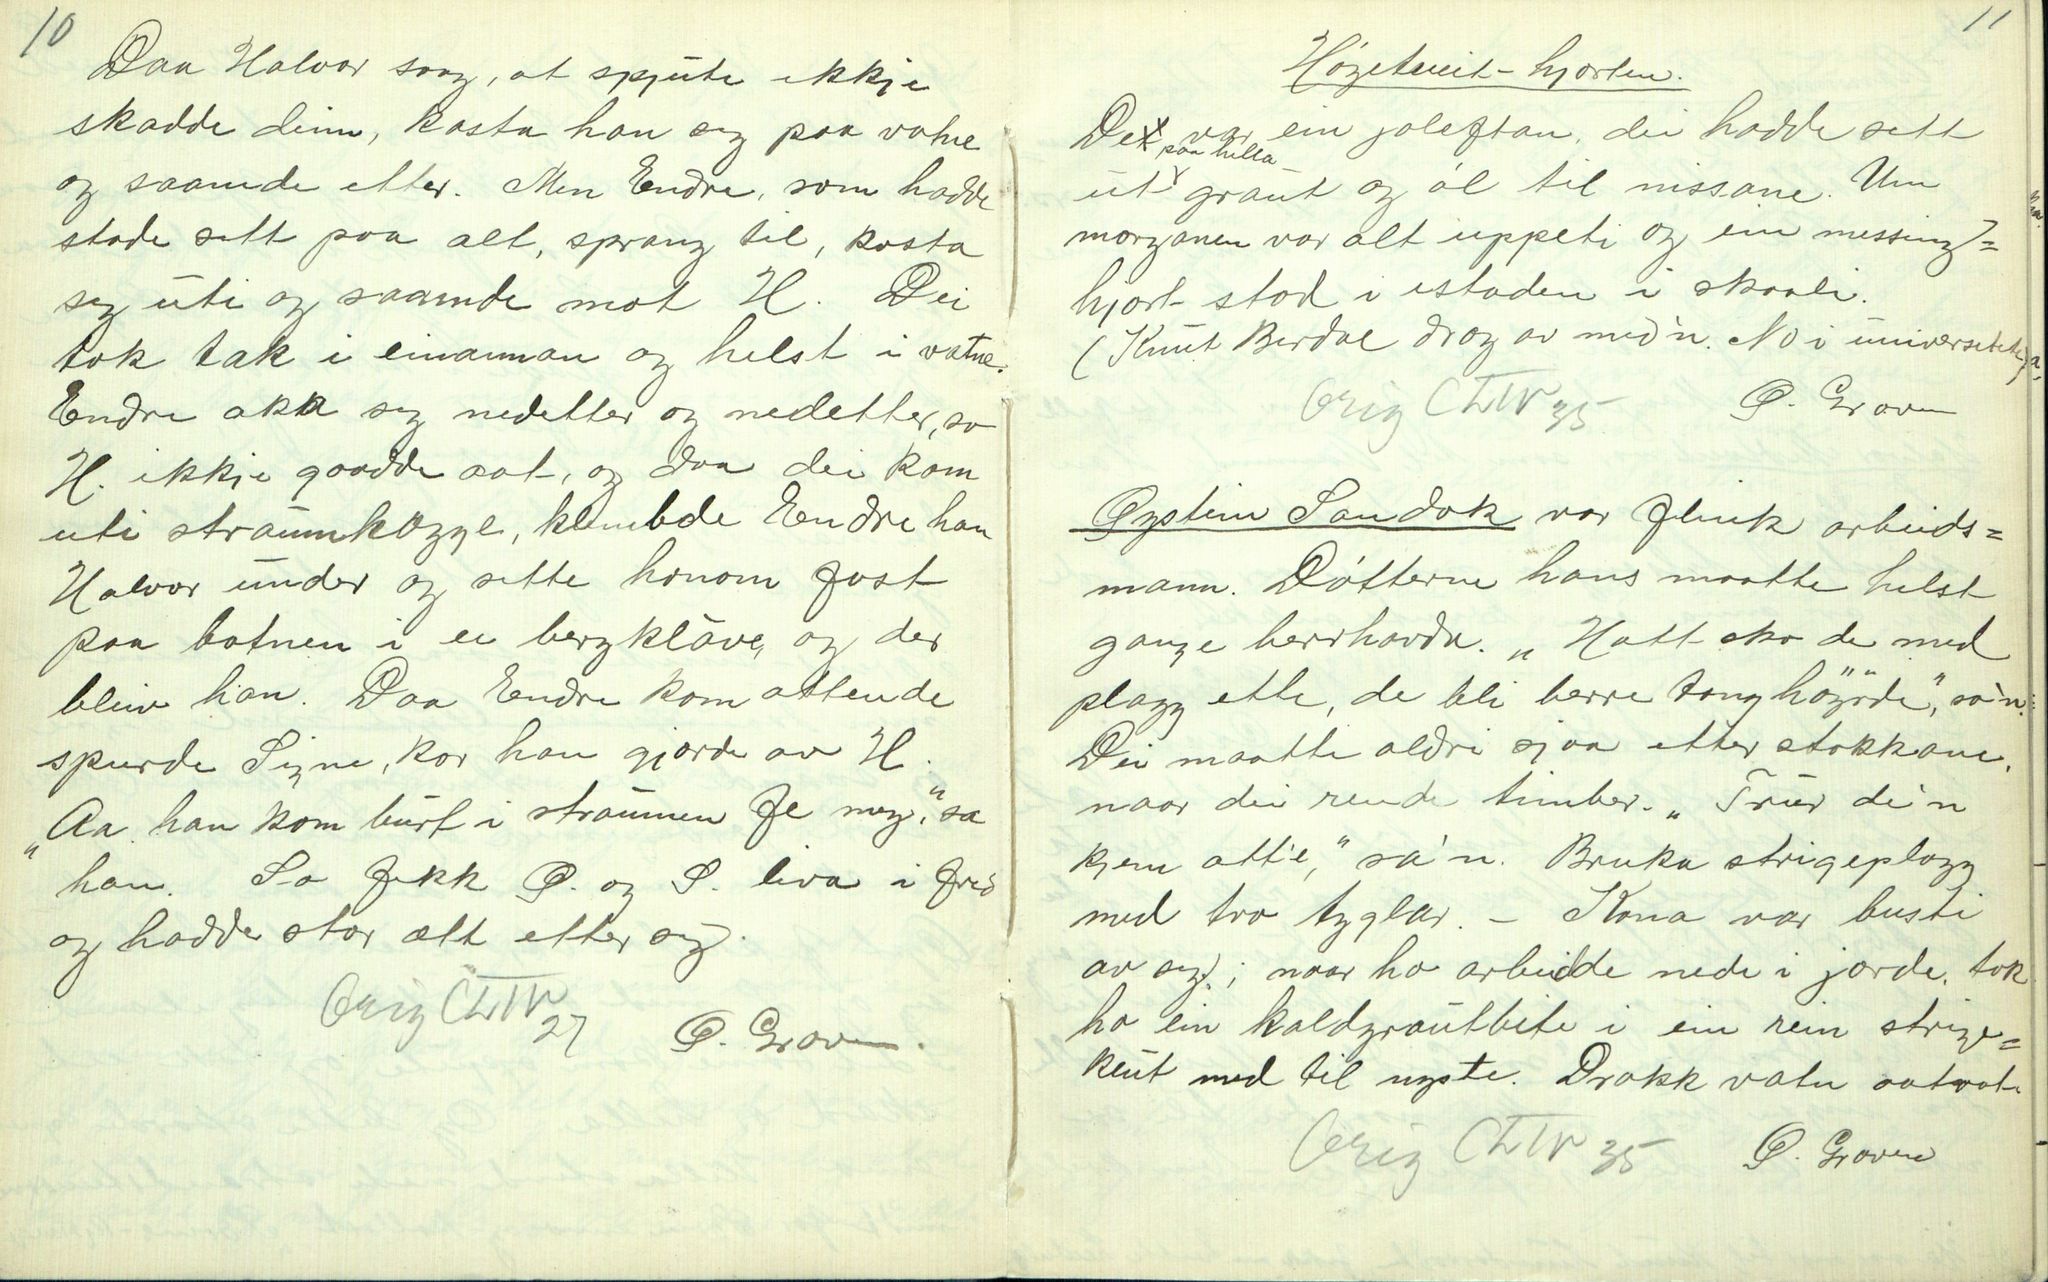 10
Daa Halvor saag, at spjute ikkje
skadde deim, kasta han seg paa vatne
og saamde etter. Men Endre, som hadde
stade sett paa alt, sprang til, kasta
seg uti og saamde mot H. Dei
tok tak i einannan og helst i vatne.
Endre akka seg nedetter og nedetter, so
H. ikkje gaadde aat, og daa dei kom
uti straumkogge, klembde Endre han
Halvor under og sette honom fast
paa botnen i ei bergklåve, og der
bleiv han. Daa Endre kom attende
spurde Signe, kor han gjorde av H.
"Aa han kom burt i straumen fe meg," sa
han. So fekk P. og S. liva i fred
og hadde stor ætt etter seg.
Orig CLIV
27 P. Groven.
11
Høgetveit-hjorten.
De var ein joleftan, dei hadde sett
ut paa hella graut og öl til nissane. Um
morganen var alt uppeti og ein messing=
hjort stod i estaden i skaali.
(Knut Berdal drog av med'n. No i universitetet)
Orig CLIV 35 P. Groven
Øystein Sandok var flink arbeids=
mann. Dötterne hans maatte helst
gange berrhovda. "Hatt ska de med
plagg ette, de bli berre tunghöyrde", sa'n.
Dei maatte aldri sjaa etter stokkane,
naar dei rende timber. "Trur de'n
kjem att'e," sa'n. Bruka strigeplagg
med tro tyglar. – Kona var busti
av seg; naar ho arbeidde nede i jorde, tok
ho ein kaldgrautbite i ein rein strige=
klut med til nyste. Drakk vatn aatvat.
Orig CLIV 35 P. Groven